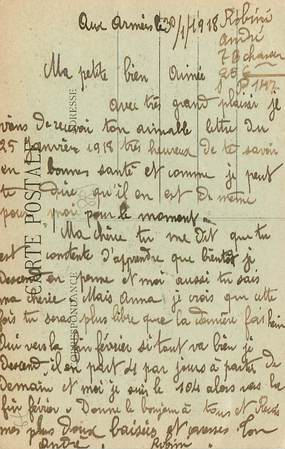 Aux Armées le 30/1/1918
Robini
andré
7e chasseur
25e
S. P. 182
Ma petite bien Aimée
avec très grand plaisir je
viens de recevoir ton aimable lettre du
25 Janvier 1918 très heureux de te savoir
en bonnes santé et comme je peut
te dire qu'il en est de meme
pour moi pour le moment.
Ma chère tu me dit que tu
est contente d'apprendre que bientôt je
Descend en perme et moi aussi tu sais
ma chérie Mais Anna je crois que cette
fois tu seras plus libre que la dernière fois hein
Oui vers la fin février si tout va bien je
Descend, il en part 4 par jours à partir de
Demain et moi je suis le 104 alors vas la
fin février. Donne le bonjour à tous et
mes plus doux baisés et caresses. Ton
andré
Robini
CARTE POSTALE
CORRESPONDANCE
ADRESSE